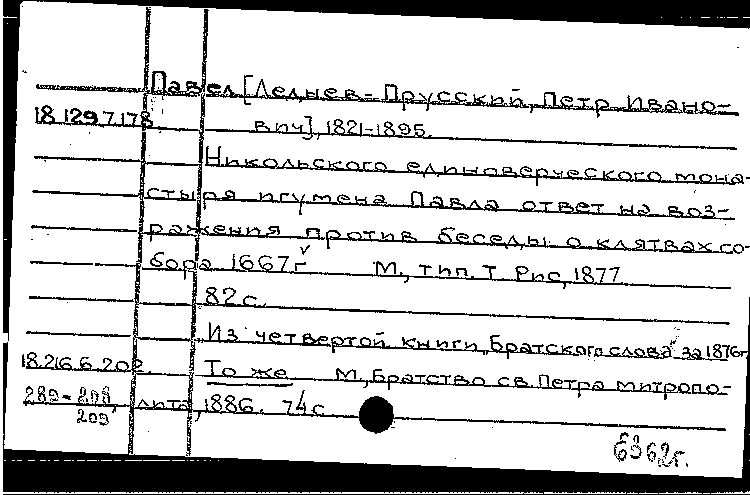 Павел [Леднев-Прусский, Петр Ивано-
18.129.7.178. вич], 1821-1895.
Никольского единоверческого мона-
стыря игумена Павла ответ на воз-
ражения против беседы о клятвах со-
бора 1667 г. М., тип. Т. Рис, 1877
82 с.
„Из четвертой книги „Братского слова" за 1876 г.
18.216.6.202. То же М., Братство св. Петра митропо-
лита, 1886. 74 с.
209